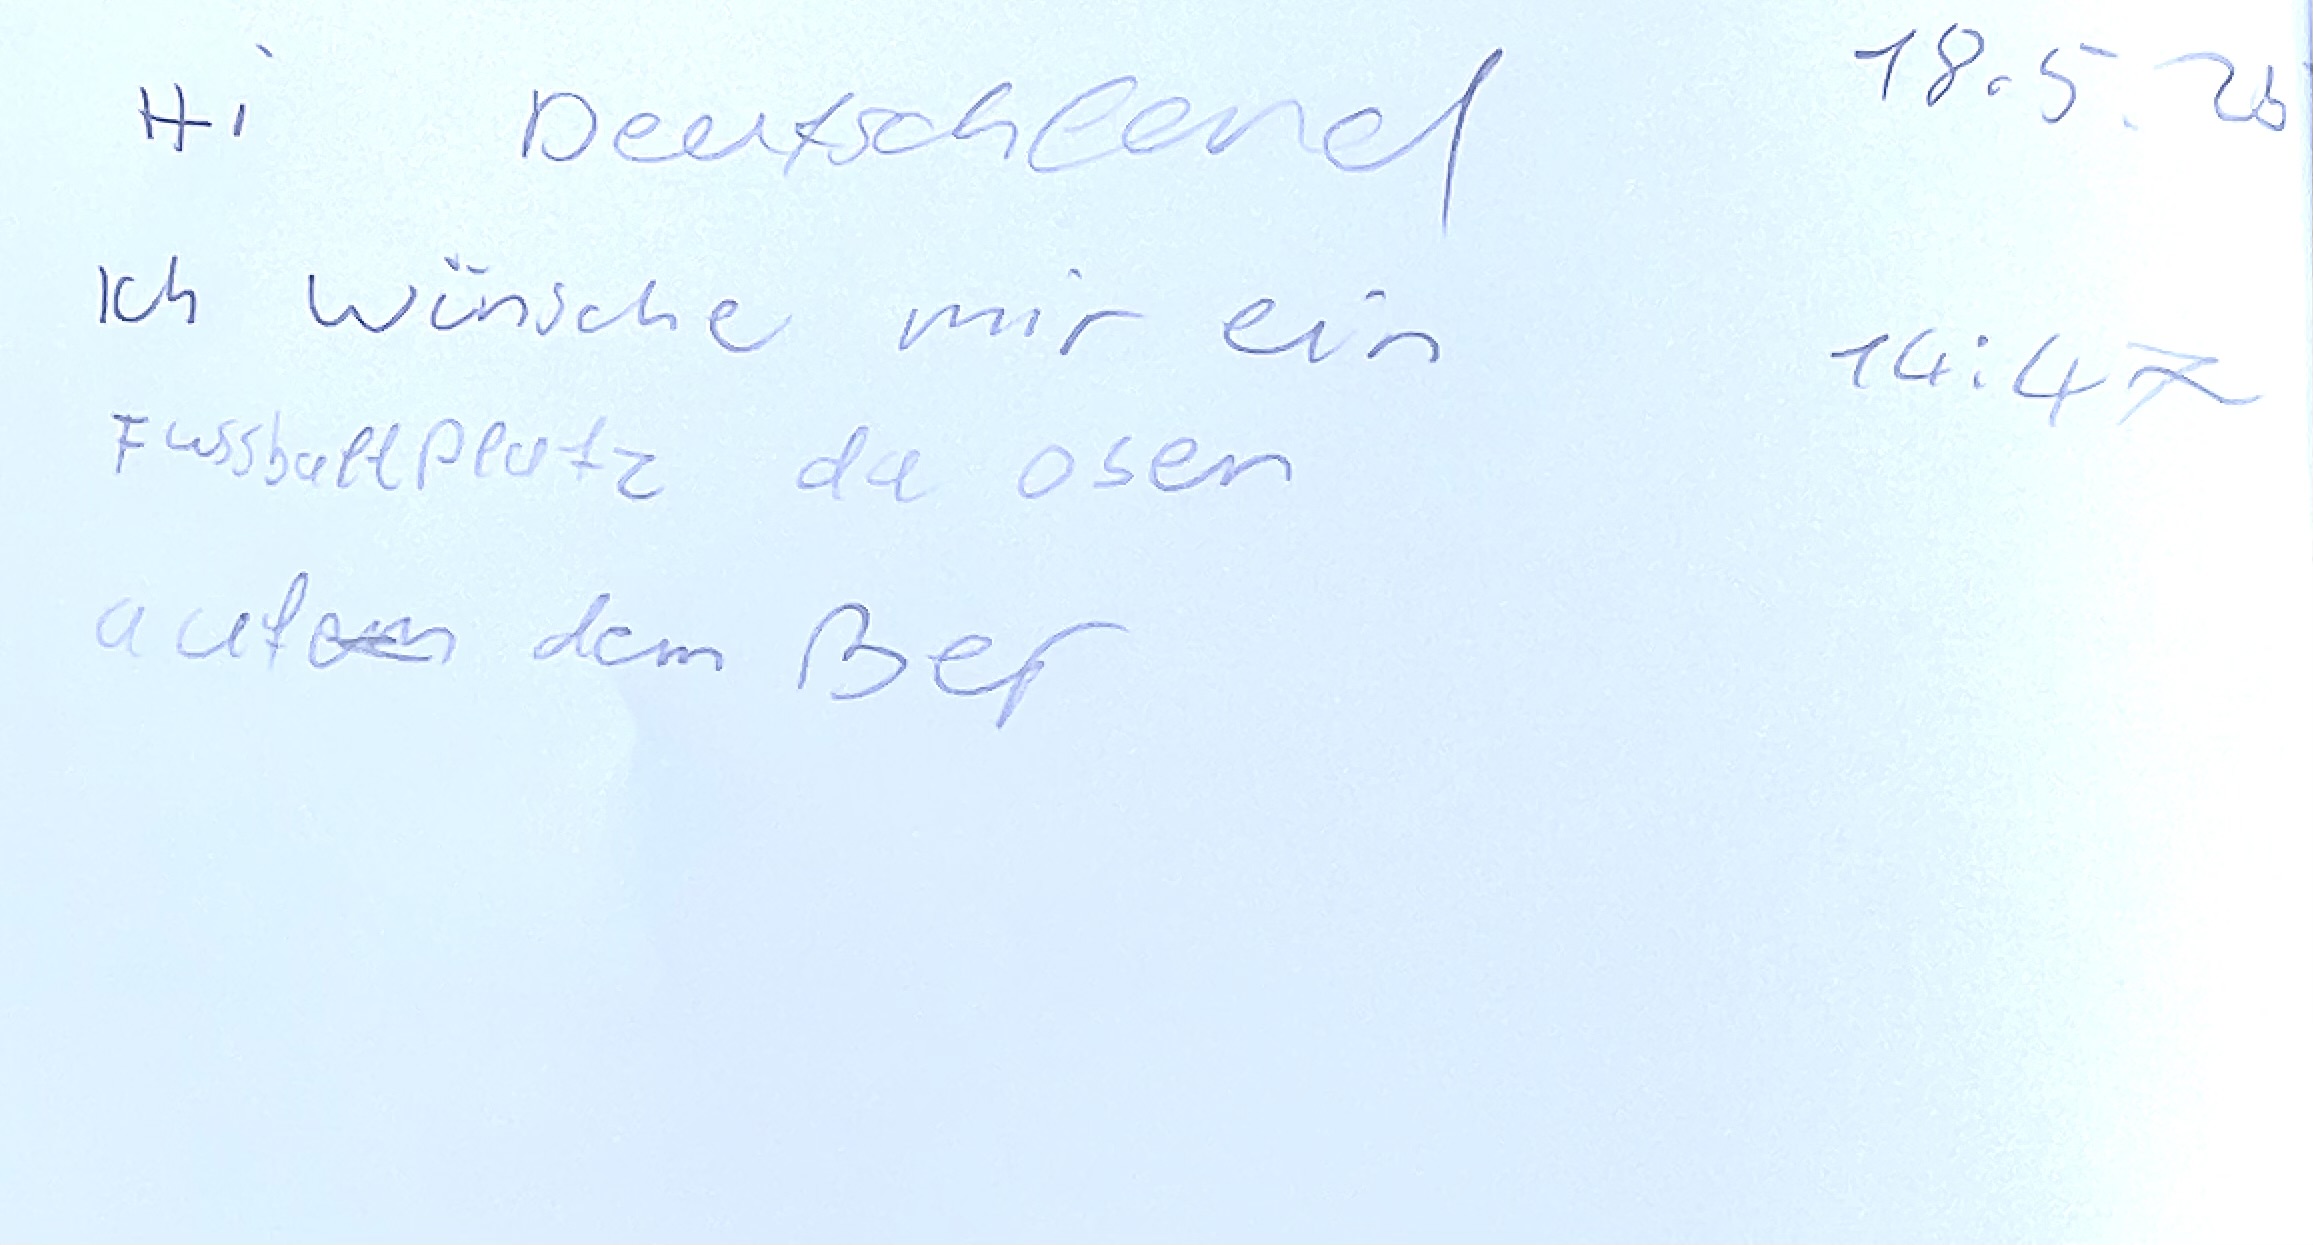 Hi Deutschland 18.5.26
Ich wünsche mir ein 14:47
Fussballplatz da osen
auf dem Ber